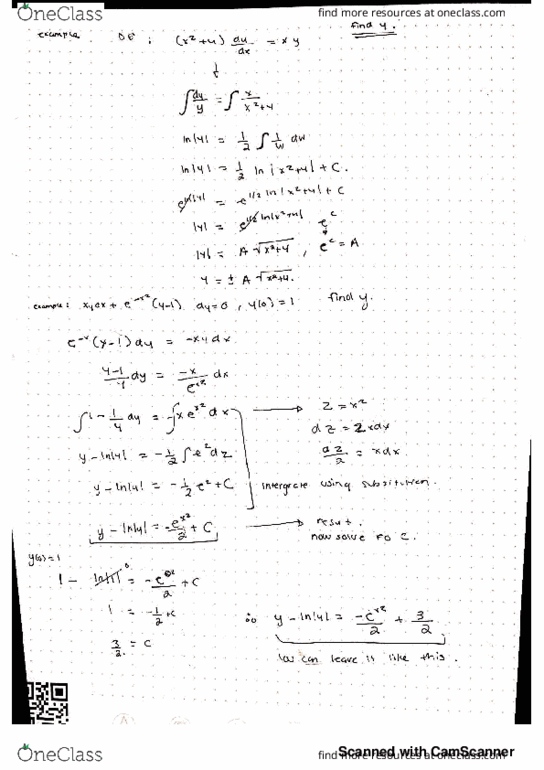 OneClass
find more resources at oneclass.com
find y.
example. DE : (x²+4) dy/dx = xy
∫ dy/y = ∫ x/x²+4
ln|y| = 1/2 ∫ 1/w dw
ln|y| = 1/2 ln|x²+4| + C.
e^ln|y| = e^1/2 ln|x²+4| + C
|y| = e^1/2 ln|x²+4| e^c
|y| = A √x²+4 , e^c = A
y = ± A √x²+4.
example: xydx + e^-x² (y-1) dy=0 , y(0)=1 find y.
e^-x (y-1) dy = -xy dx
y-1/y dy = -x/e^-x² dx
∫ 1 - 1/y dy = -∫ x e^x² dx → z = x²
dz = 2xdx
y - ln|y| = -1/2 ∫ e^z dz
dz/2 = xdx
y - ln|y| = -1/2 e^z + C
intergrate using substitution.
y - ln|y| = -e^x²/2 + C → result.
now solve fo C.
y(0)=1
1 - ln|1| 0 = -e^0²/2 + C
1 = -1/2 + C
3/2 = C
∴ y - ln|y| = -e^x²/2 + 3/2
You can leave it like this.
Scanned with CamScanner
OneClass
find more resources at oneclass.com